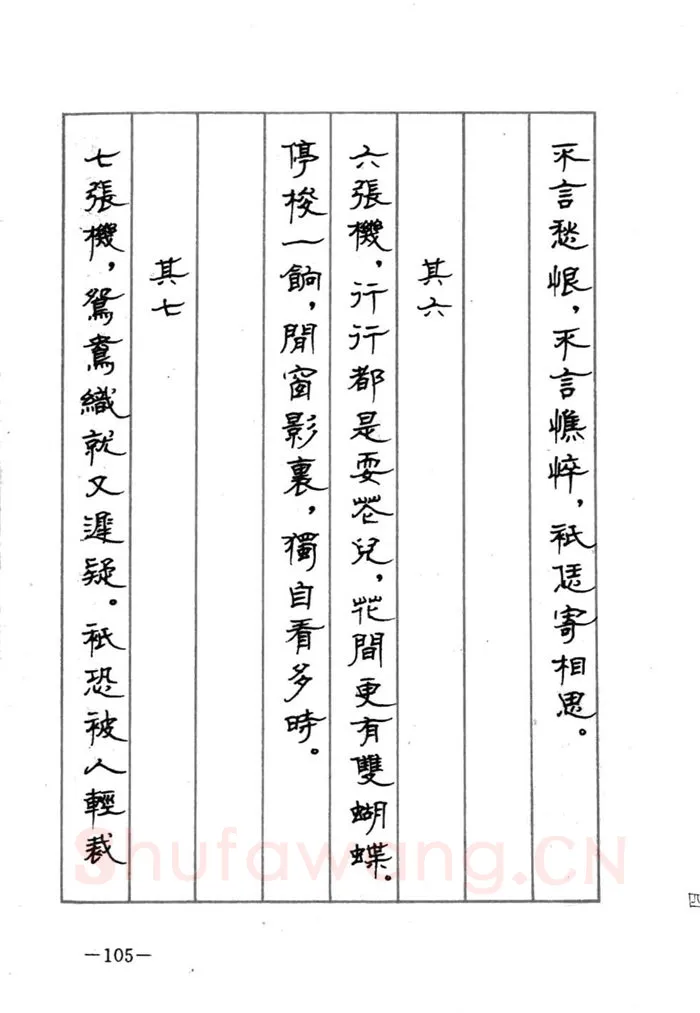 不言愁恨，不言憔悴，祇恁寄相思。
其六
六張機，行行都是耍花兒，花間更有雙蝴蝶。
停梭一餉，閒窗影裏，獨自看多時。
其七
七張機，鴛鴦織就又遲疑。祇恐被人輕裁
Shufawang.CN
—105—
四